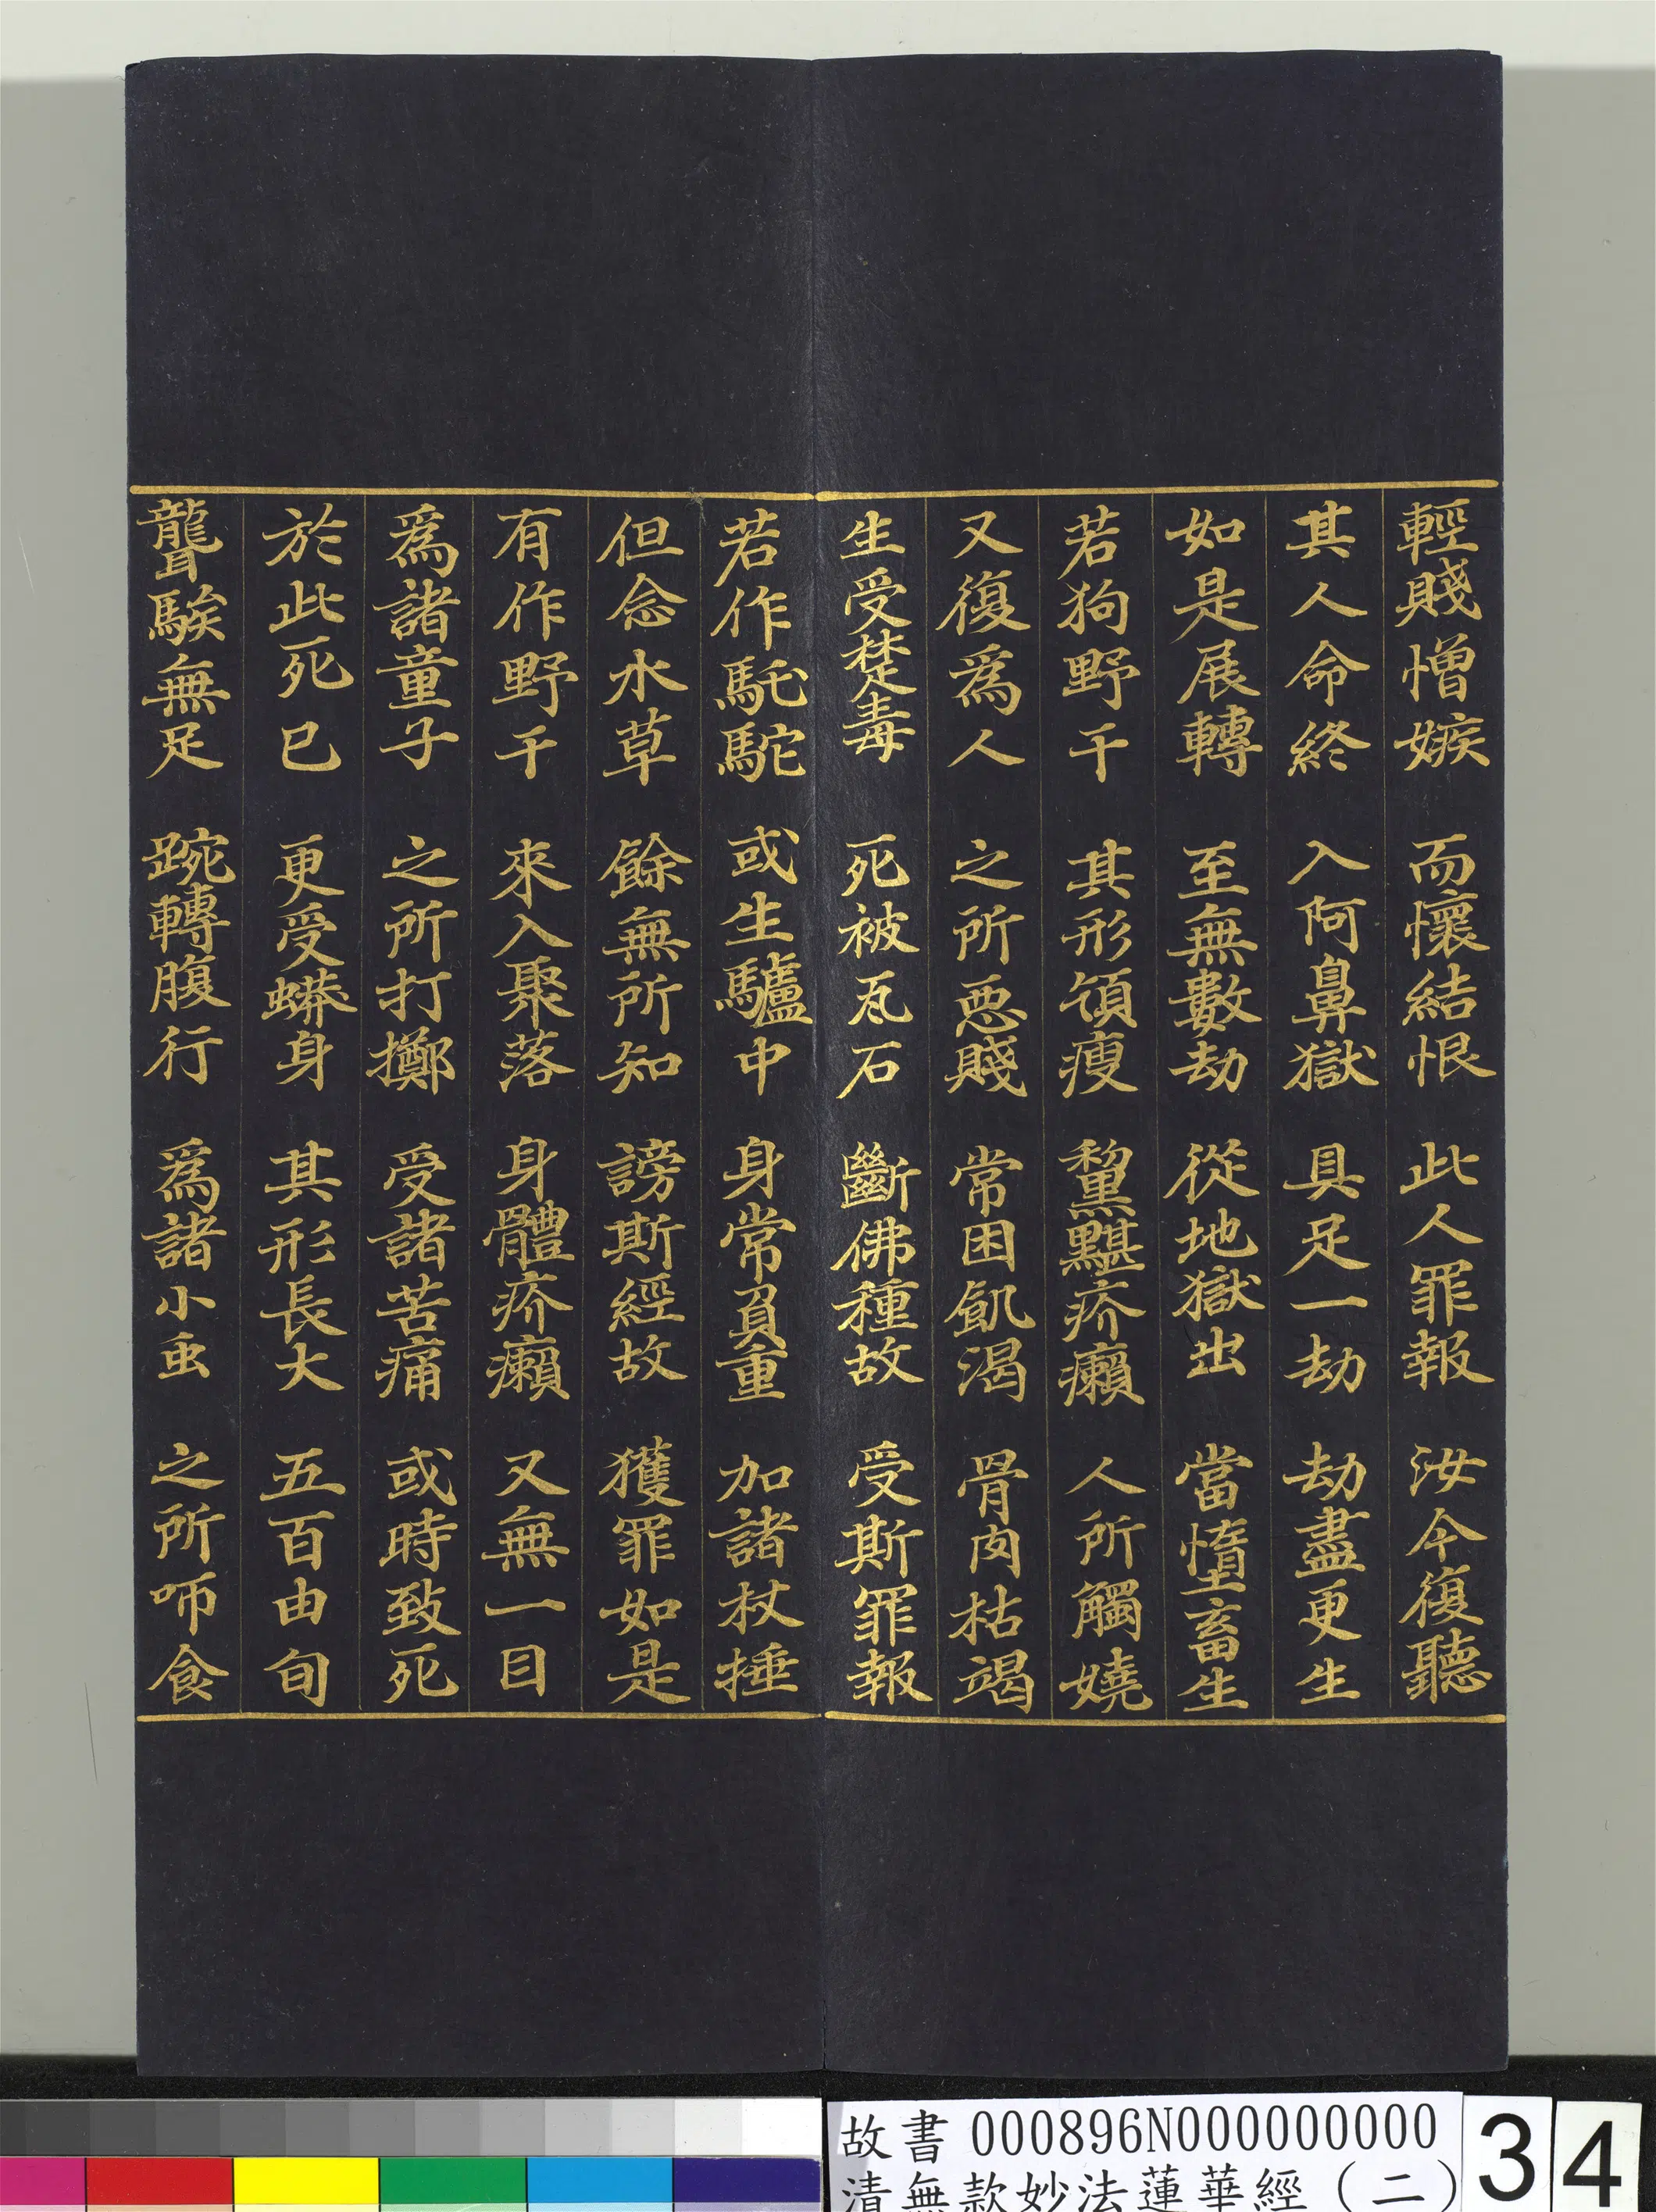 輕賤憎嫉 而懷結恨 此人罪報 汝今復聽
其人命終 入阿鼻獄 具足一劫 劫盡更生
如是展轉 至無數劫 從地獄出 當墮畜生
若狗野干 其形頷瘦 黧黮疥癩 人所觸嬈
又復爲人 之所惡賤 常困飢渴 骨肉枯竭
生受楚毒 死被瓦石 斷佛種故 受斯罪報
若作馲駝 或生驢中 身常負重 加諸杖捶
但念水草 餘無所知 謗斯經故 獲罪如是
有作野干 來入聚落 身體疥癩 又無一目
爲諸童子 之所打擲 受諸苦痛 或時致死
於此死已 更受蟒身 其形長大 五百由旬
聾騃無足 踠轉腹行 爲諸小虫 之所咂食
故書 000896N000000000
清無款妙法蓮華經(二)
34